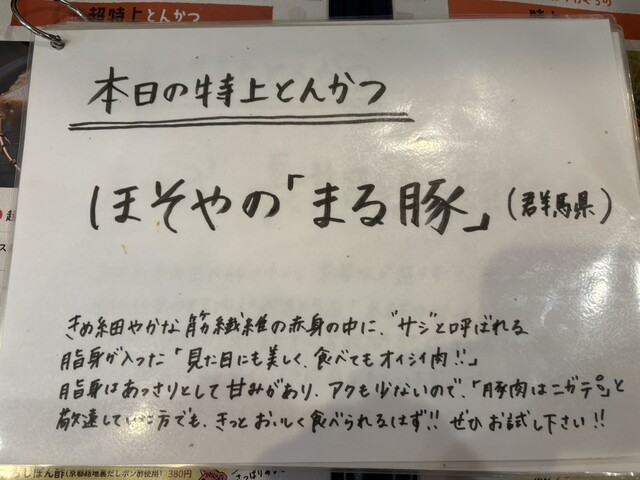 超特上とんかつ
本日の特上とんかつ
ほそやの「まる豚」(群馬県)
きめ細やかな筋繊維の赤身の中に、"サシ"と呼ばれる
脂身が入った「見た目にも美しく、食べてもオイシイ肉!!」
脂身はあっさりとして甘みがあり、アクも少ないので、「豚肉はニガテ。」と
敬遠していた方でも、きっとおいしく食べられるはず!! ぜひお試し下さい!!
ろしぽん酢(京都路地裏だしポン酢使用) 380円